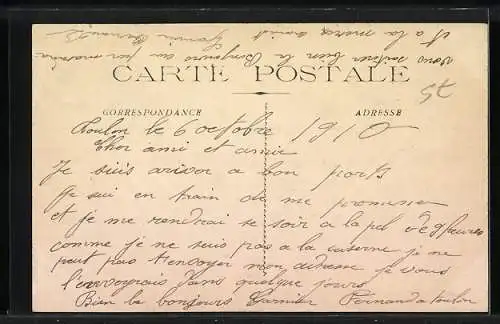 CARTE POSTALE
CORRESPONDANCE
ADRESSE
Toulon le 6 octobre 1910
Cher ami et amie
Je suis ariver a bon port
Je sui en train de me promener
et je me rendrai se soir a la pel de 9 heures
comme je ne suis pas a la caserne je ne
peut pas t envoyer mon adresse je vous
l'envoyrais dans quelque jours
Bien le bonjours Garnier Fernand a toulon
vous saiterer bien le Bonjours
et a la
57